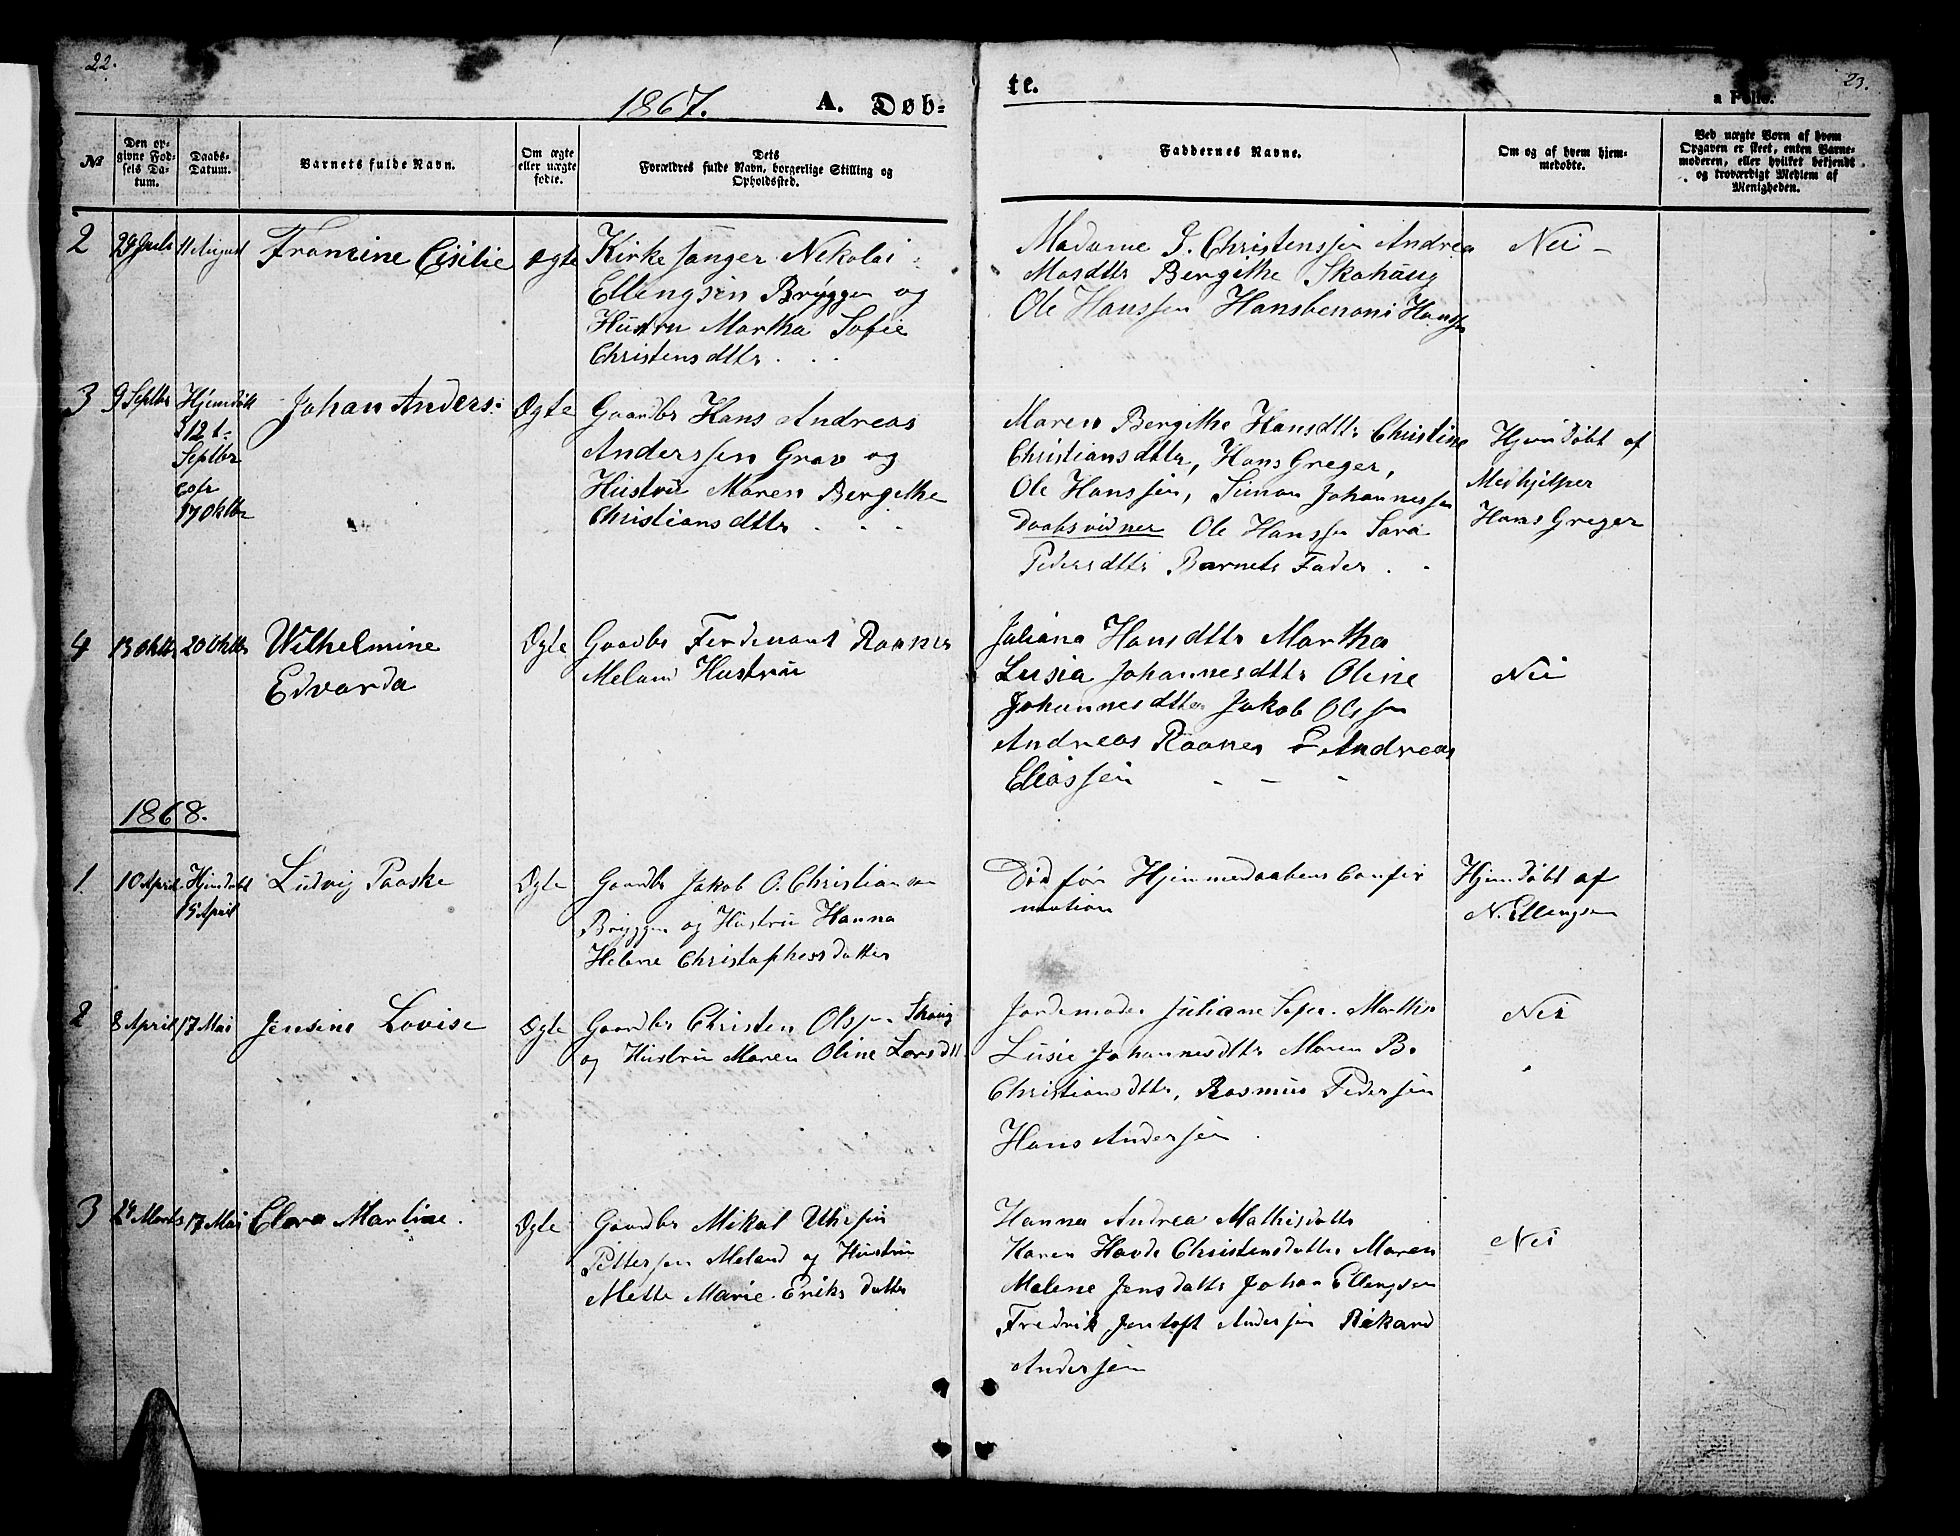 22.
23.
1867. A. Døb-
te.
a Folio.
No
Den opgivne Fødsels Datum.
Daabs-Datum.
Barnets fulde Navn.
Om ægte eller uægte fødte.
Dets Forældres fulde Navn, borgerlige Stilling og Opholdssted.
Faddernes Navne.
Om og af hvem hjemmedøbte.
Ved uægte Børn af hvem Opgaven er skeet, enten Barnemoderen, eller hvilket bekjendt og troværdigt Medlem af Menigheden.
2 29 Juli 11 August Francine Cisilie Ægte
Kirkesanger Nekolai
Ellengsen Bryggen og
Hustru Martha Sofie
Christensdttr
Madame J. Christenssen Andrea
Masdttr Bergithe Skohaug
Ole Hanssen Hansbenoni Hanssen
Nei -
3 9 Septbr
Hjemdøbt
12t
Septbr
17 Oktbr
Johan Anders: Ægte
Gaardbr Hans Andreas
Anderssen Grav og
Hustru Maren Bergithe
Christiansdttr
Maren Bergithe Hansdttr Christine
Christiansdttr, Hans Greger,
Ole Hanssen, Simon Johannessen
Daabsvidner Ole Hanssen Sara
Pedersdttr Barnets Fader
Hjemdøbt af
Medhjelper
Hans Greger
4 13 Oktbr 20 Oktbr
Wilhelmine
Edvarda
Ægte
Gaardbr Ferdenant Raanes
Meland Hustru
Juliana Hansdttr Martha
Lusia Johannesdttr Oline
Johannesdtter Jakob Olssen
Andreas Raanes Andreas
Eliassen
Nei
1868.
1 10 April
Hjemdøbt
15 April
Ludvig Paaske Ægte
Gaardbr Jakob O. Christiansen
Bryggen og Hustru Hanna
Helene Christophersdatter
Død før Hjemmedaabens Confir
mation
Hjemdøbt af
N. Ellengsen
2 8 April 17 Mai Jensine Lovise Ægte
Gaardbr Christen Olssen Skaug
og Hustru Maren Oline Larsdtt
Jordemoder Juliane Martha
Lusie Johannesdttr Maren B.
Christiansdttr, Rasmus Pedersen
Hans Andersen
Nei
3 24 Marts 17 Mai Clara Martine. Ægte
Gaardbr Mikal
Pettersen Meland og Hustru
Mette Marie Eriksdatter
Hanna Andrea Mathisdattr
Karen Havda Christensdatter Maren
Malene Jensdattr Johan Ellengsen
Fredrik Jentoft Andersen Rikard
Andersen
Nei